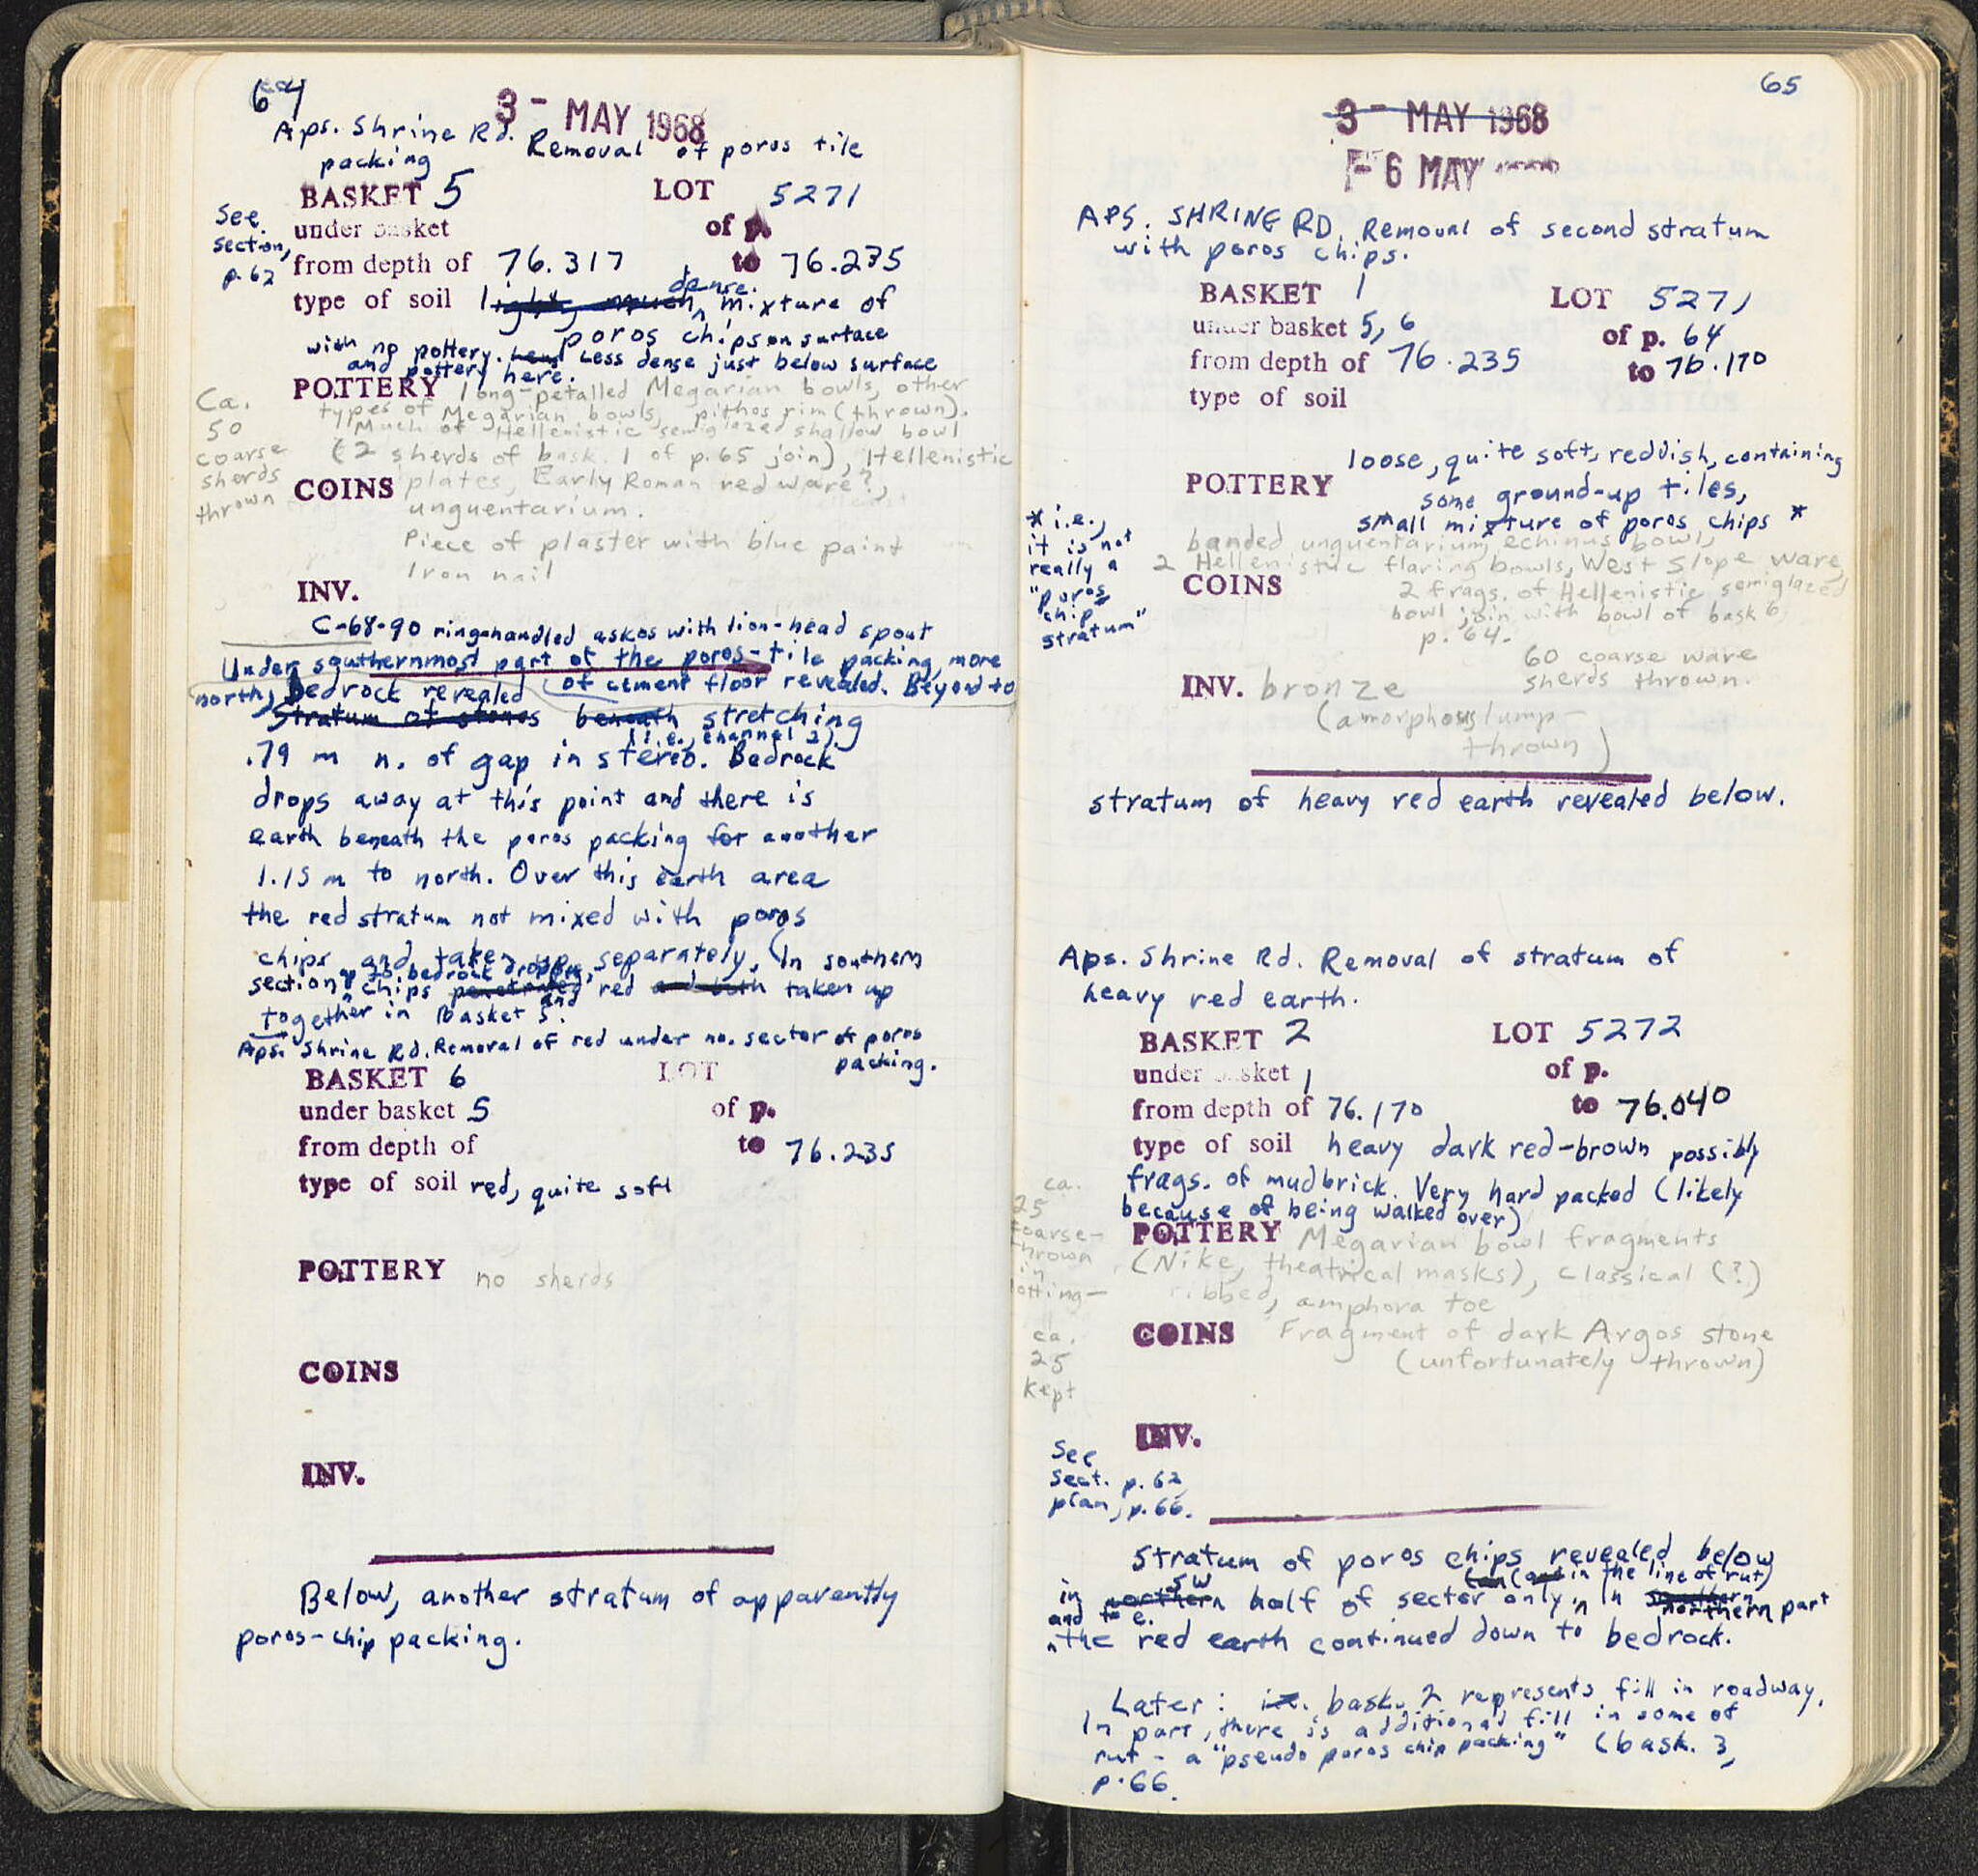 64
3 - MAY 1968
Aps. Shrine Rd. Removal of poros tile
packing
BASKET 5 LOT 5271
See
section,
p. 62
under basket of p.
from depth of 76.317 to 76.235
type of soil light, much dense mixture of
poros chips on surface
with no pottery. Less dense just below surface
and pottery here.
POTTERY long-petalled Megarian bowls, other
types of Megarian bowls, pithos rim (thrown).
Much of Hellenistic semiglazed shallow bowl
(2 sherds of bask. 1 of p. 65 join), Hellenistic
COINS plates, Early Roman red ware?,
unguentarium.
Piece of plaster with blue paint
Iron nail
Ca.
50
coarse
sherds
thrown
INV.
C-68-90 ring-handled askos with lion-head spout
Under southernmost part of the poros-tile packing, more
of cement floor revealed. Beyond to
north, bedrock revealed
Stratum of stones beneath stretching
(i.e., channel 2)
.79 m n. of gap in stereo. Bedrock
drops away at this point and there is
earth beneath the poros packing for another
1.15 m to north. Over this earth area
the red stratum not mixed with poros
chips and taken up separately. (In southern
section up to bedrock dropping, chips penetrated and red and both taken up
together in Basket 5.
Aps. Shrine Rd. Removal of red under no. sector of poros
packing.
BASKET 6 LOT
under basket 5 of p.
from depth of to 76.235
type of soil red, quite soft
POTTERY no sherds
COINS
INV.
Below, another stratum of apparently
poros-chip packing.
65
3 - MAY 1968
- 6 MAY
APS. SHRINE RD. Removal of second stratum
with poros chips.
BASKET 1 LOT 5271
under basket 5, 6 of p. 64
from depth of 76.235 to 76.170
type of soil
loose, quite soft, reddish, containing
POTTERY some ground-up tiles,
small mixture of poros chips *
* i.e.,
it is not
really a
"poros
chip
stratum"
banded unguentarium, echinus bowl,
2 Hellenistic flaring bowls, West Slope ware,
COINS 2 frags. of Hellenistic semiglazed
bowl join with bowl of bask 6,
p. 64.
60 coarse ware
sherds thrown.
INV. bronze
(amorphous lump -
thrown)
stratum of heavy red earth revealed below.
Aps. Shrine Rd. Removal of stratum of
heavy red earth.
BASKET 2 LOT 5272
under basket 1 of p.
from depth of 76.170 to 76.040
type of soil heavy dark red-brown possibly
frags. of mudbrick. Very hard packed (likely
because of being walked over)
POTTERY Megarian bowl fragments
(Nike, theatrical masks), Classical (?)
ribbed, amphora toe
COINS Fragment of dark Argos stone
(unfortunately thrown)
ca.
25
coarse-
thrown
in
lotting-
ca.
25
kept
INV.
See
sect. p. 62,
plan, p. 66.
Stratum of poros chips revealed below
in northern SW half of sector only, (and in the line of rut)
In southern northern part
and to e.
the red earth continued down to bedrock.
Later: i.e. bask. 2 represents fill in roadway.
In part, there is additional fill in some of
rut - a "pseudo poros chip packing" (bask. 3,
p. 66.